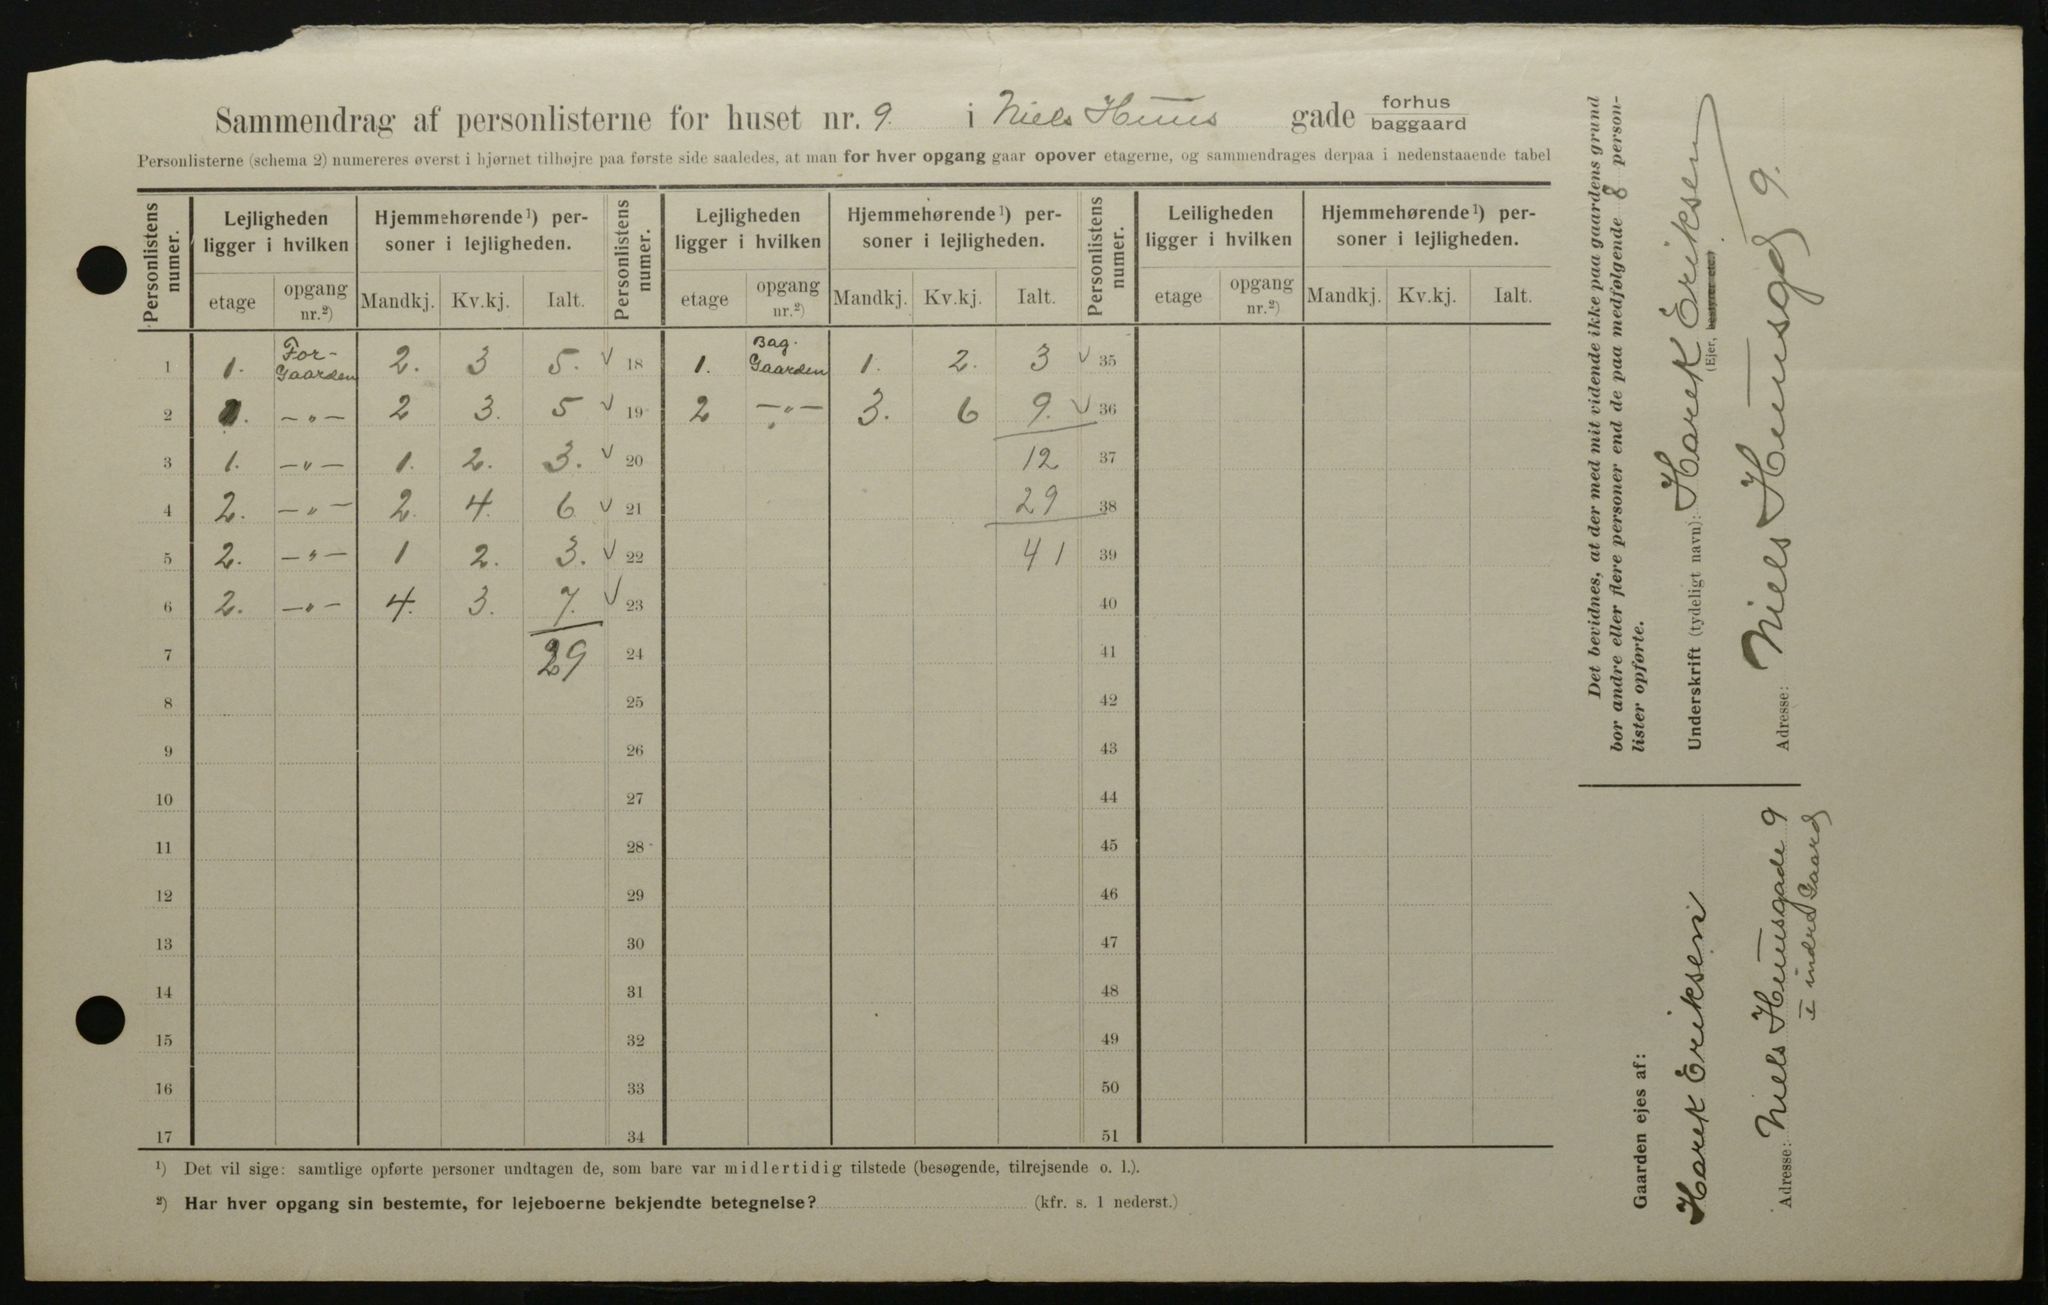 Sammendrag af personlisterne for huset nr. 9. i Niels Huus gade forhus
baggaard
Personlisterne (schema 2) numereres øverst i hjørnet tilhøjre paa første side saaledes, at man for hver opgang gaar opover etagerne, og sammendrages derpaa i nedenstaaende tabel
Personlistens numer. Lejligheden ligger i hvilken Hjemmehørende¹) personer i lejligheden. Personlistens numer. Lejligheden ligger i hvilken Hjemmehørende¹) personer i lejligheden. Personlistens numer. Leiligheden ligger i hvilken Hjemmehørende¹) personer i lejligheden.
etage opgang nr.²) Mandkj. Kv.kj. Ialt. etage opgang nr.²) Mandkj. Kv.kj. Ialt. etage opgang nr.²) Mandkj. Kv.kj. Ialt.
1 1. For-Gaarden 2. 3 5. √ 18 1. Bag.Gaarden 1. 2. 3 √ 35
2 1. —„— 2 3. 5 √ 19 2 —„— 3. 6 9. √ 36
3 1. —„— 1. 2. 3. √ 20 12 37
4 2. —„— 2. 4. 6 √ 21 29 38
5 2. —„— 1 2. 3. √ 22 41 39
6 2. —„— 4. 3. 7. √ 23 40
7 29 24 41
8 25 42
9 26 43
10 27 44
11 28 45
12 29 46
13 30 47
14 31 48
15 32 49
16 33 50
17 34 51
¹) Det vil sige: samtlige opførte personer undtagen de, som bare var midlertidig tilstede (besøgende, tilrejsende o. l.).
²) Har hver opgang sin bestemte, for lejeboerne bekjendte betegnelse? (kfr. s. 1 nederst.)
Det bevidnes, at der med mit vidende ikke paa gaardens grund
bor andre eller flere personer end de paa medfølgende 8 person-
lister opførte.
Underskrift (tydeligt navn): Harek Eriksen
(Ejer, bestyrer etc.)
Adresse: Niels Huusgd 9.
Gaarden ejes af:
Harek Eriksen
Adresse: Niels Huusgade 9
i indre Gaard